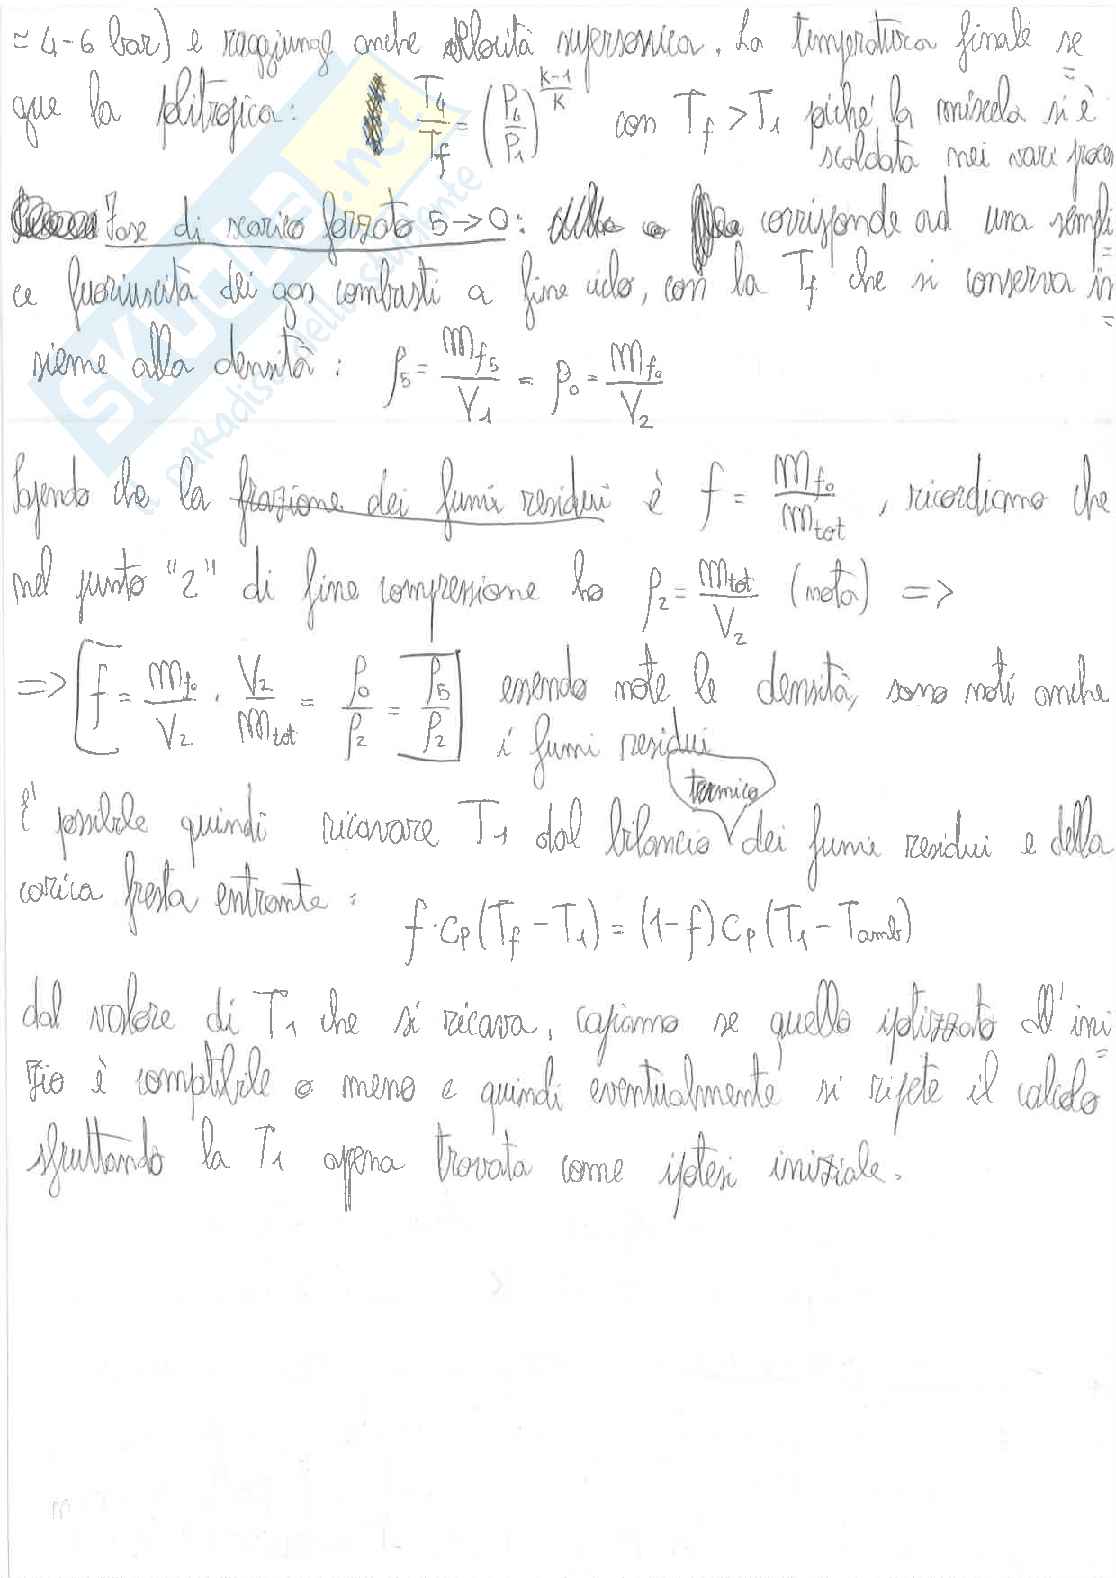 ≃ 4-6 bar) e raggiunge anche velocità supersonica. La temperatura finale se=
que la politropica: T4/Tf = (P4/P1)^((k-1)/k) con Tf > T1 poiché la miscela si è
scaldata nei vari proces
Fase di scarico forzato 5→0: corrisponde ad una sempli=
ce fuoriuscita dei gas combusti a fine ciclo, con la Tf che si conserva in=
sieme alla densità: ρ5 = mf5/V1 = ρ0 = mf0/V2
Sapendo che la frazione dei fumi residui è f = mf0/mtot, ricordiamo che
nel punto "2" di fine compressione ho ρ2 = mtot/V2 (nota) =>
=> [f = mf0/V2 · V2/mtot = ρ0/ρ2 = ρ5/ρ2] essendo note le densità, sono noti anche
i fumi residui
termico
E' possibile quindi ricavare T1 dal bilancio dei fumi residui e della
carica fresca entrante:
f·cp(Tf - T1) = (1-f)cp(T1 - Tamb)
dal valore di T1 che si ricava, capiamo se quello ipotizzato all'ini=
zio è compatibile o meno e quindi eventualmente si ripete il calcolo
sfruttando la T1 appena trovata come ipotesi iniziale.
SKUOLA.net
il paradiso dello studente